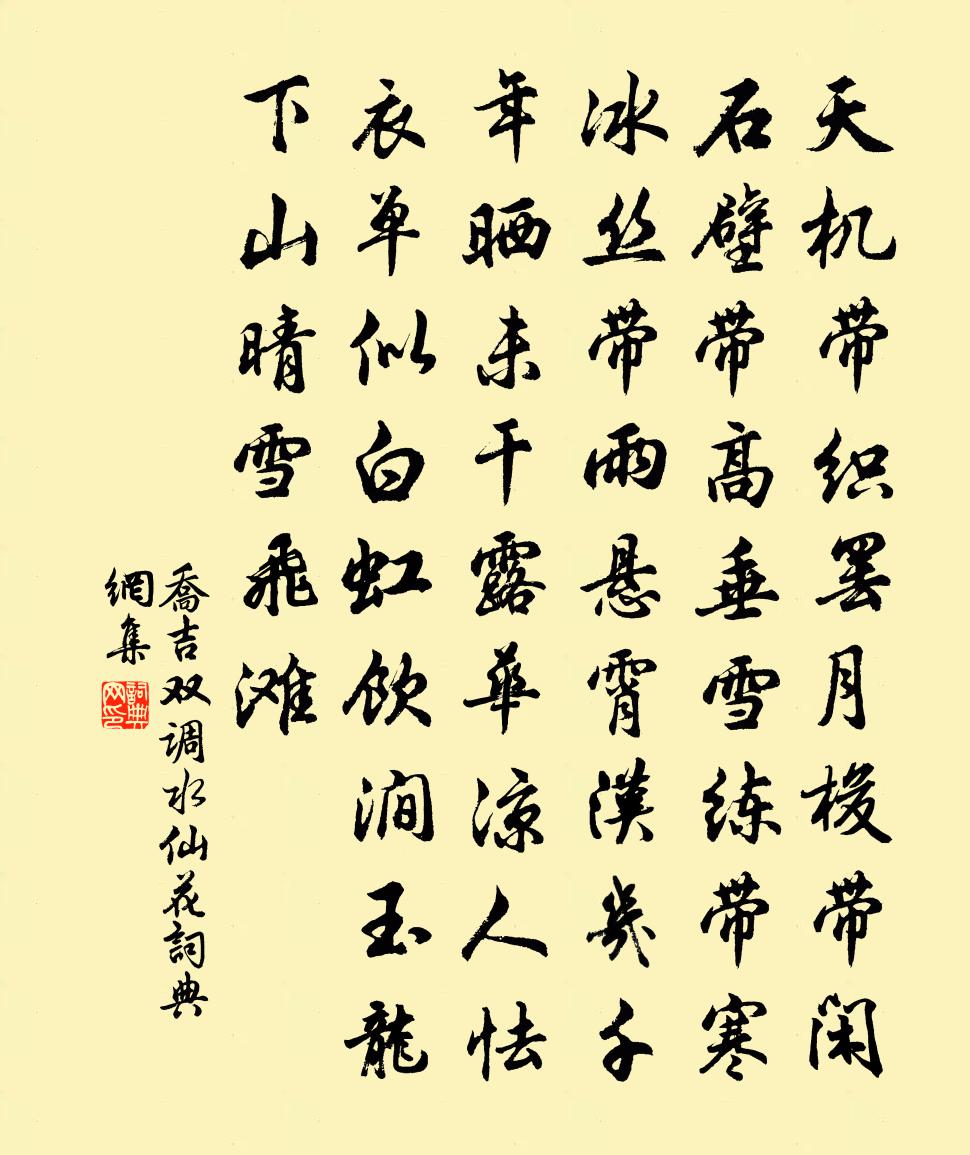 天机带织罢月梭带闲
石壁带高垂雪练带寒
冰丝带雨悬霄漢幾千
年晒未干露華凉人怯
衣单似白虹饮澗玉龍
下山晴雪飛滩
喬吉双调水仙花詞典
網集
詞典
网印